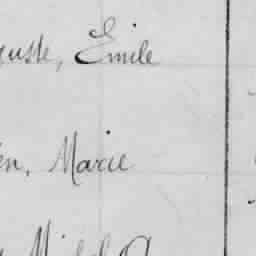 guste, Emile
en, Marie